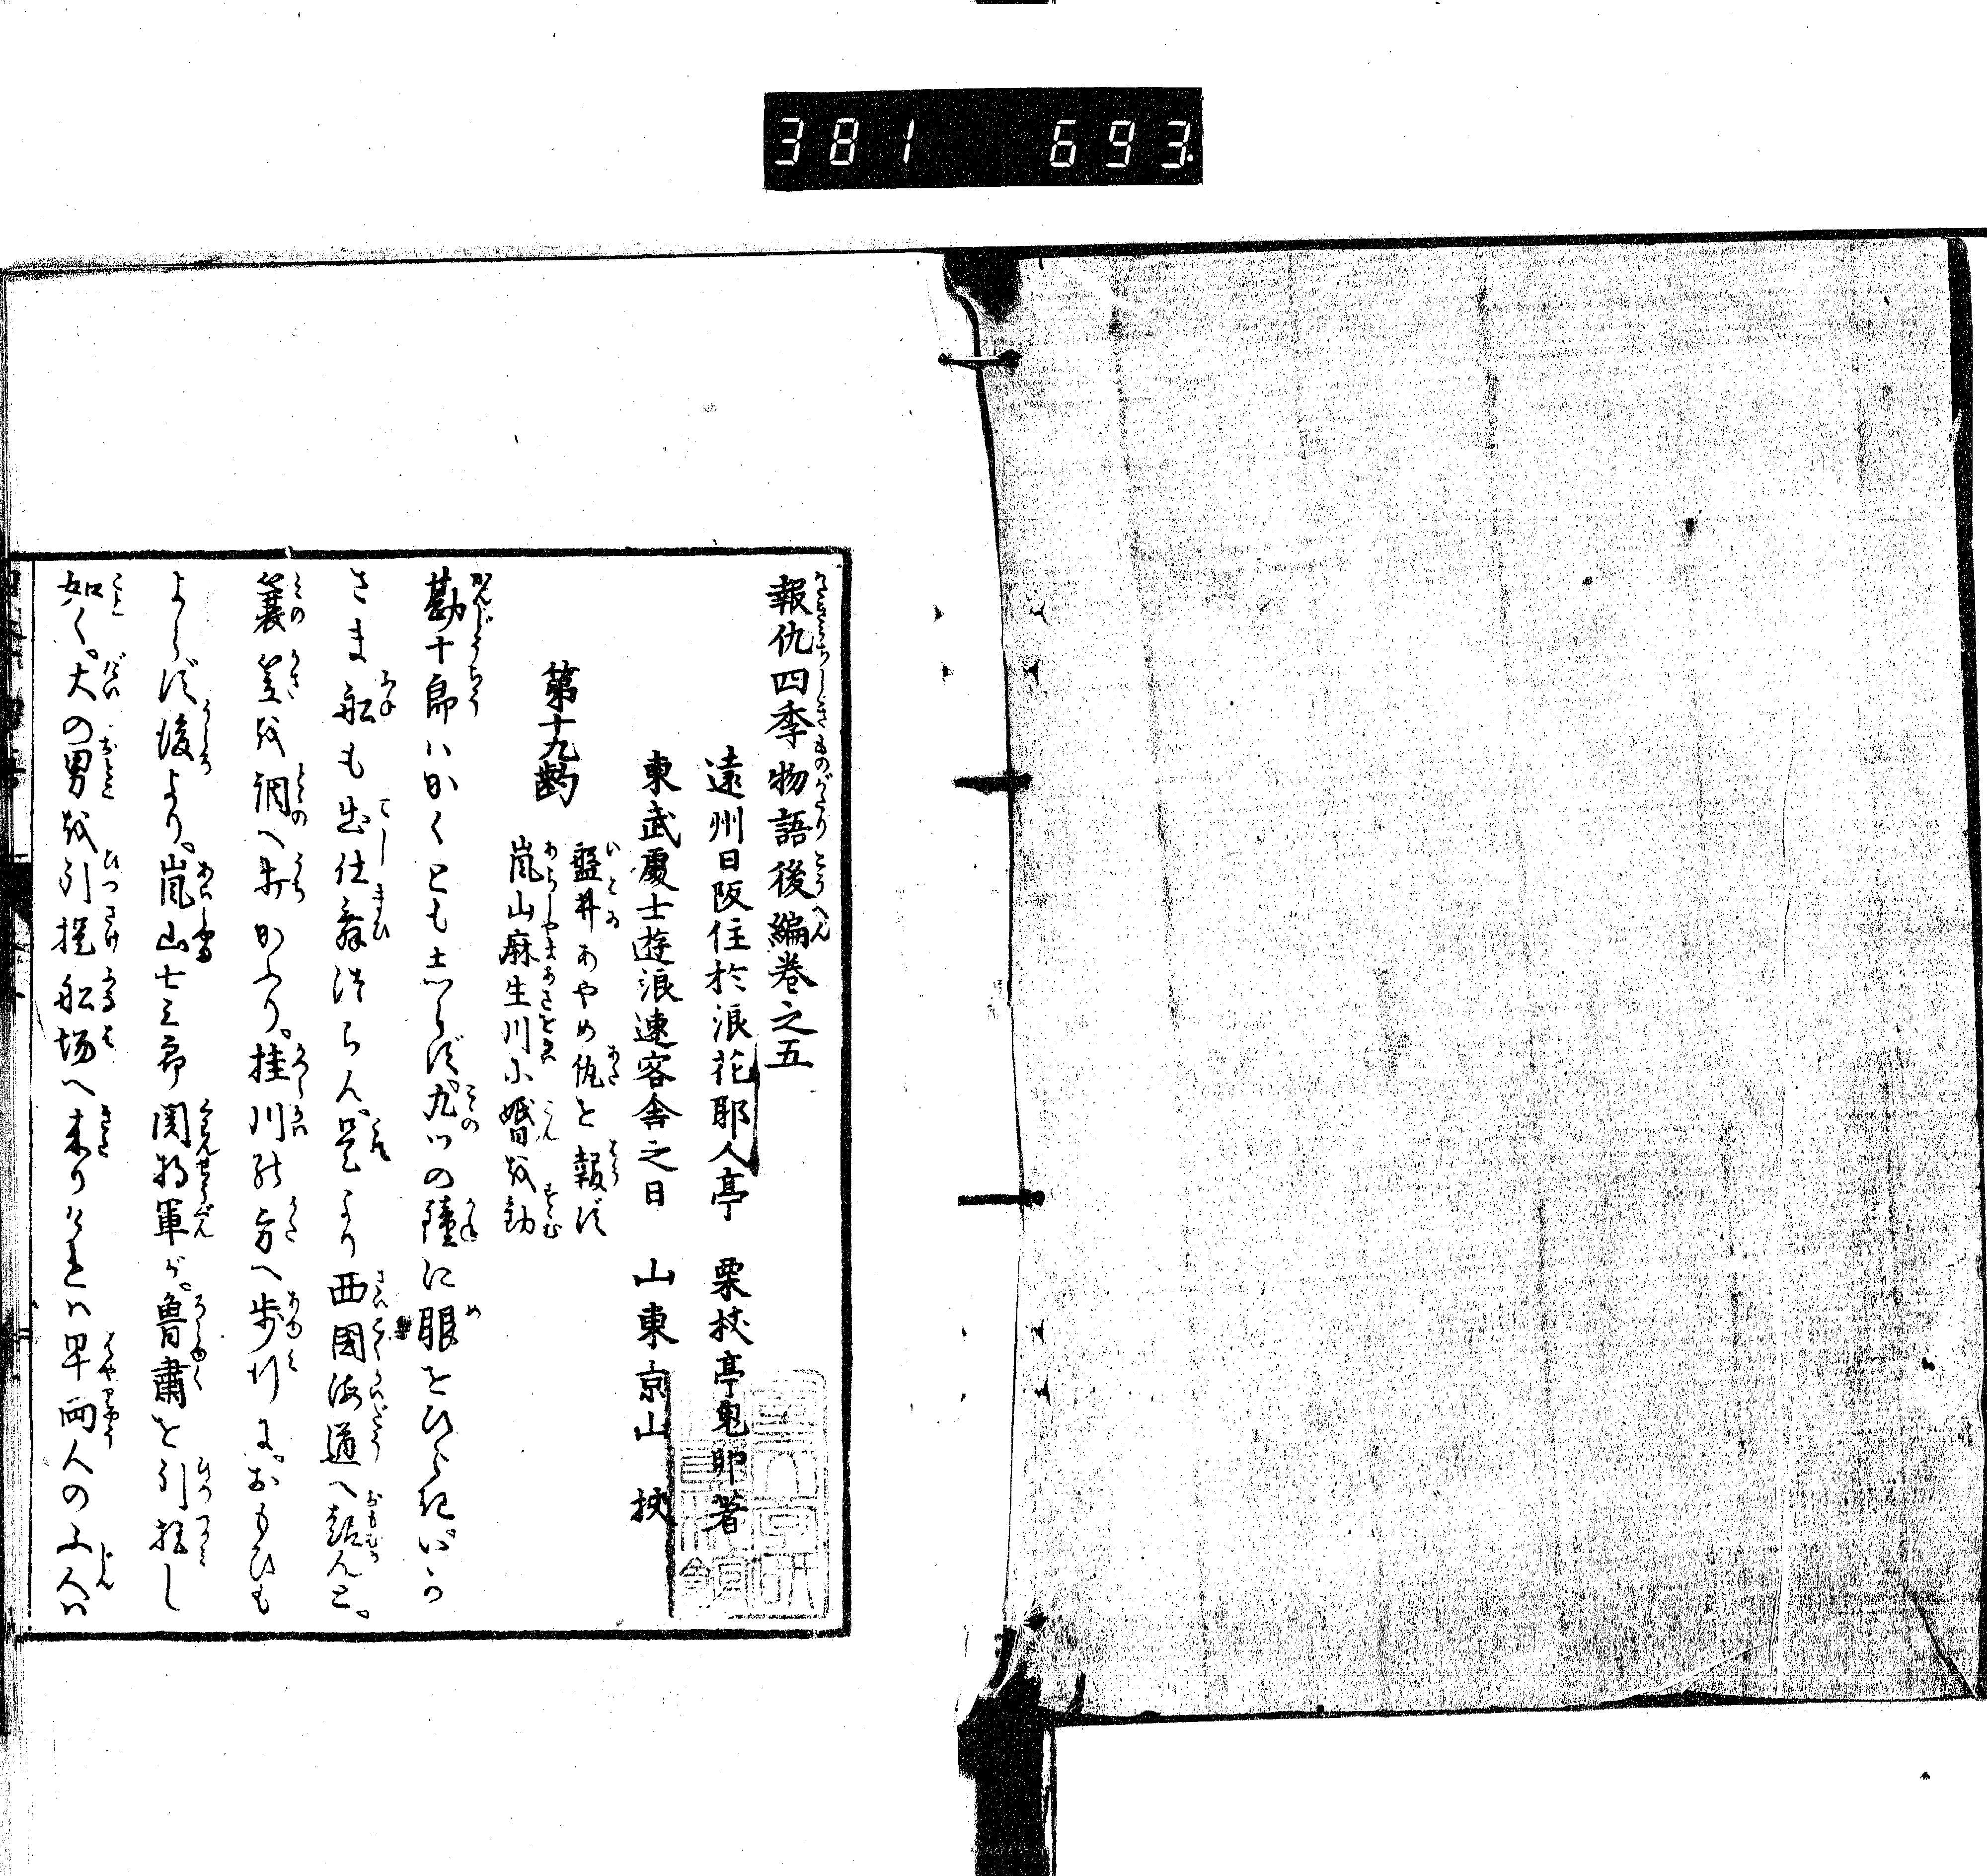 381 693
報仇四季物語後編巻之五
遠州日阪住於浪花耶人亭 栗杖亭鬼卵著
東武處士遊浪速客舎之日 山東京山 挍
第十九齣
盤井あやめ仇を報ず
嵐山麻生川小婚を勧
勘十郎ハかくとも志らず。九ツの鐘に眼をひらき。いか
さま船も出仕舞つらん。是より西國海道へ趣んと。
簑笠を網へ打かふり。桂川の方へ歩行に。おもひも
よらず後より。嵐山七三郎関将軍が。魯肅を引 し
如く。大の男を引提船場へ来りけれハ早両人の 人ハ